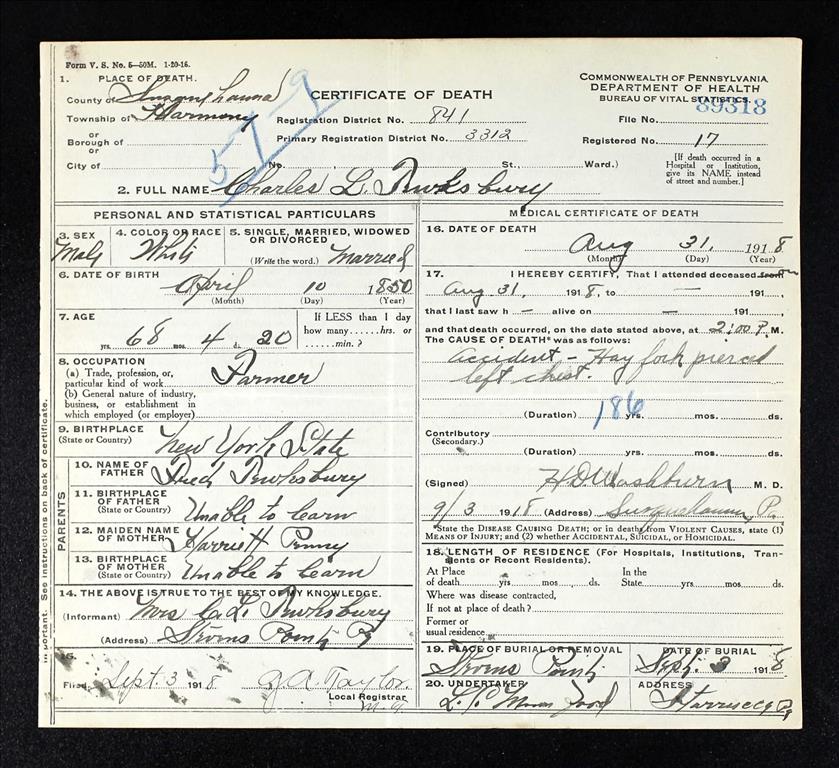 Form V. S. No. 5—50M. 1-20-16.
1. PLACE OF DEATH.
County of Susquehanna
Township of Harmony
or
Borough of
or
City of
57-9
CERTIFICATE OF DEATH
Registration District No. 841
Primary Registration District No. 3312
No. , St., Ward.)
COMMONWEALTH OF PENNSYLVANIA
DEPARTMENT OF HEALTH
BUREAU OF VITAL STATISTICS.
File No. 89318
Registered No. 17
[If death occurred in a
Hospital or Institution,
give its NAME instead
of street and number.]
2. FULL NAME Charles L. Tewksbury
PERSONAL AND STATISTICAL PARTICULARS
3. SEX
Male
4. COLOR OR RACE
White
5. SINGLE, MARRIED, WIDOWED
OR DIVORCED
(Write the word.) Married
6. DATE OF BIRTH
April 10 1850
(Month) (Day) (Year)
7. AGE
68 yrs. 4 mos. 20 ds.
If LESS than 1 day
how many......hrs. or
......min.?
8. OCCUPATION
(a) Trade, profession, or,
particular kind of work Farmer
(b) General nature of industry,
business, or establishment in
which employed (or employer)
9. BIRTHPLACE
(State or Country) New York State
PARENTS
10. NAME OF
FATHER Tewksbury
11. BIRTHPLACE
OF FATHER
(State or Country) Unable to learn
12. MAIDEN NAME
OF MOTHER Harriett Pinney
13. BIRTHPLACE
OF MOTHER
(State or Country) Unable to learn
14. THE ABOVE IS TRUE TO THE BEST OF MY KNOWLEDGE.
(Informant) Mrs C. L. Tewksbury
(Address) Stevens Point, Pa
15.
Filed Sept. 3 1918 Taylor.
Local Registrar
MEDICAL CERTIFICATE OF DEATH
16. DATE OF DEATH
Aug 31, 1918
(Month) (Day) (Year)
17. I HEREBY CERTIFY, That I attended deceased from
Aug. 31, 1918, to — 191
that I last saw h — alive on — 191
and that death occurred, on the date stated above, at 2:00 P. M.
The CAUSE OF DEATH* was as follows:
Accident – Hay fork pierced
left chest.
186
(Duration) yrs. mos. ds.
Contributory
(Secondary.)
(Duration) yrs. mos. ds.
(Signed) H D Washburn M. D.
9/3 1918 (Address) Susquehanna, Pa.
*State the DISEASE CAUSING DEATH; or in deaths from VIOLENT CAUSES, state (1)
MEANS OF INJURY; and (2) whether ACCIDENTAL, SUICIDAL, or HOMICIDAL.
18. LENGTH OF RESIDENCE (For Hospitals, Institutions, Tran-
sients or Recent Residents).
At Place
of death yrs. mos. ds.
In the
State yrs. mos. ds.
Where was disease contracted,
If not at place of death?
Former or
usual residence
19. PLACE OF BURIAL OR REMOVAL
Stevens Point,
DATE OF BURIAL
Sept. 3 1918
20. UNDERTAKER
ADDRESS
Starrucca Pa
important. See instructions on back of certificate.